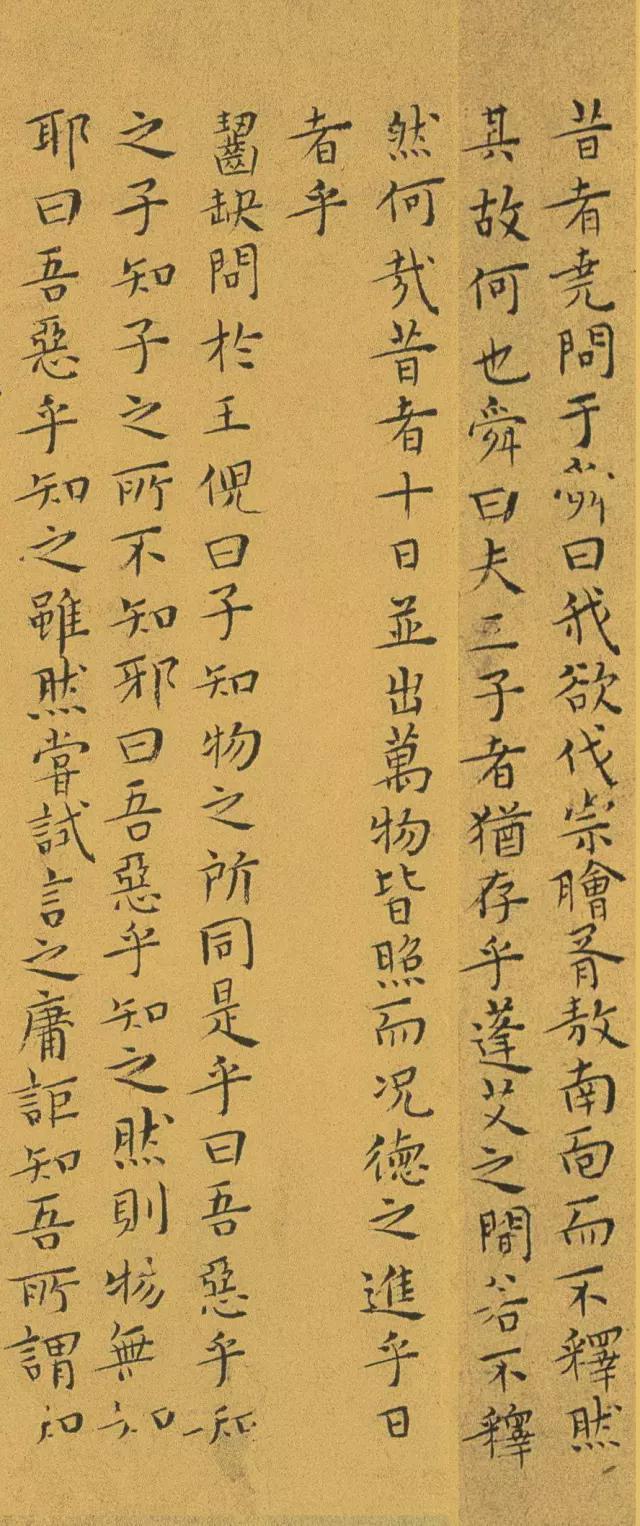 昔者堯問于舜曰我欲伐崇膾胥敖南面而不釋然
其故何也舜曰夫三子者猶存乎蓬艾之間若不釋
然何哉昔者十日並出萬物皆照而况德之進乎日
者乎
齧缺問於王倪曰子知物之所同是乎曰吾惡乎知
之子知子之所不知邪曰吾惡乎知之然則物無知
耶曰吾惡乎知之雖然嘗試言之庸詎知吾所謂知